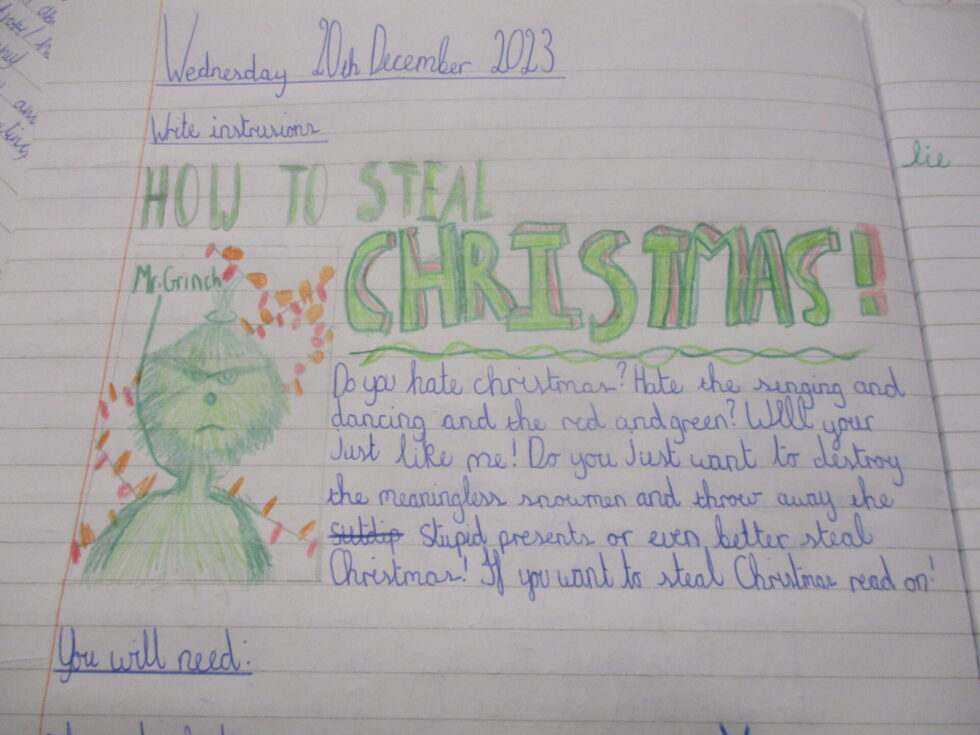 Wednesday 20th December 2023
Write instrusions
lie
HOW TO STEAL
CHRISTMAS!
Mr. Grinch
Do you hate christmas? Hate the singing and
dancing and the red and green? Well your
Just like me! Do you Just want to destroy
the meaningless snowmen and throw away the
sutdip stupid presents or even better steal
Christmas! If you want to steal Christmas read on!
You will need: